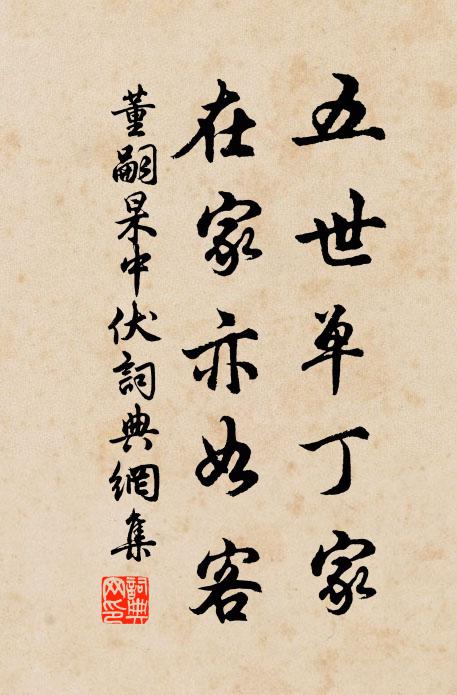 五世单丁家
在家亦如客
董嗣杲中伏詞典網集
詞典网印